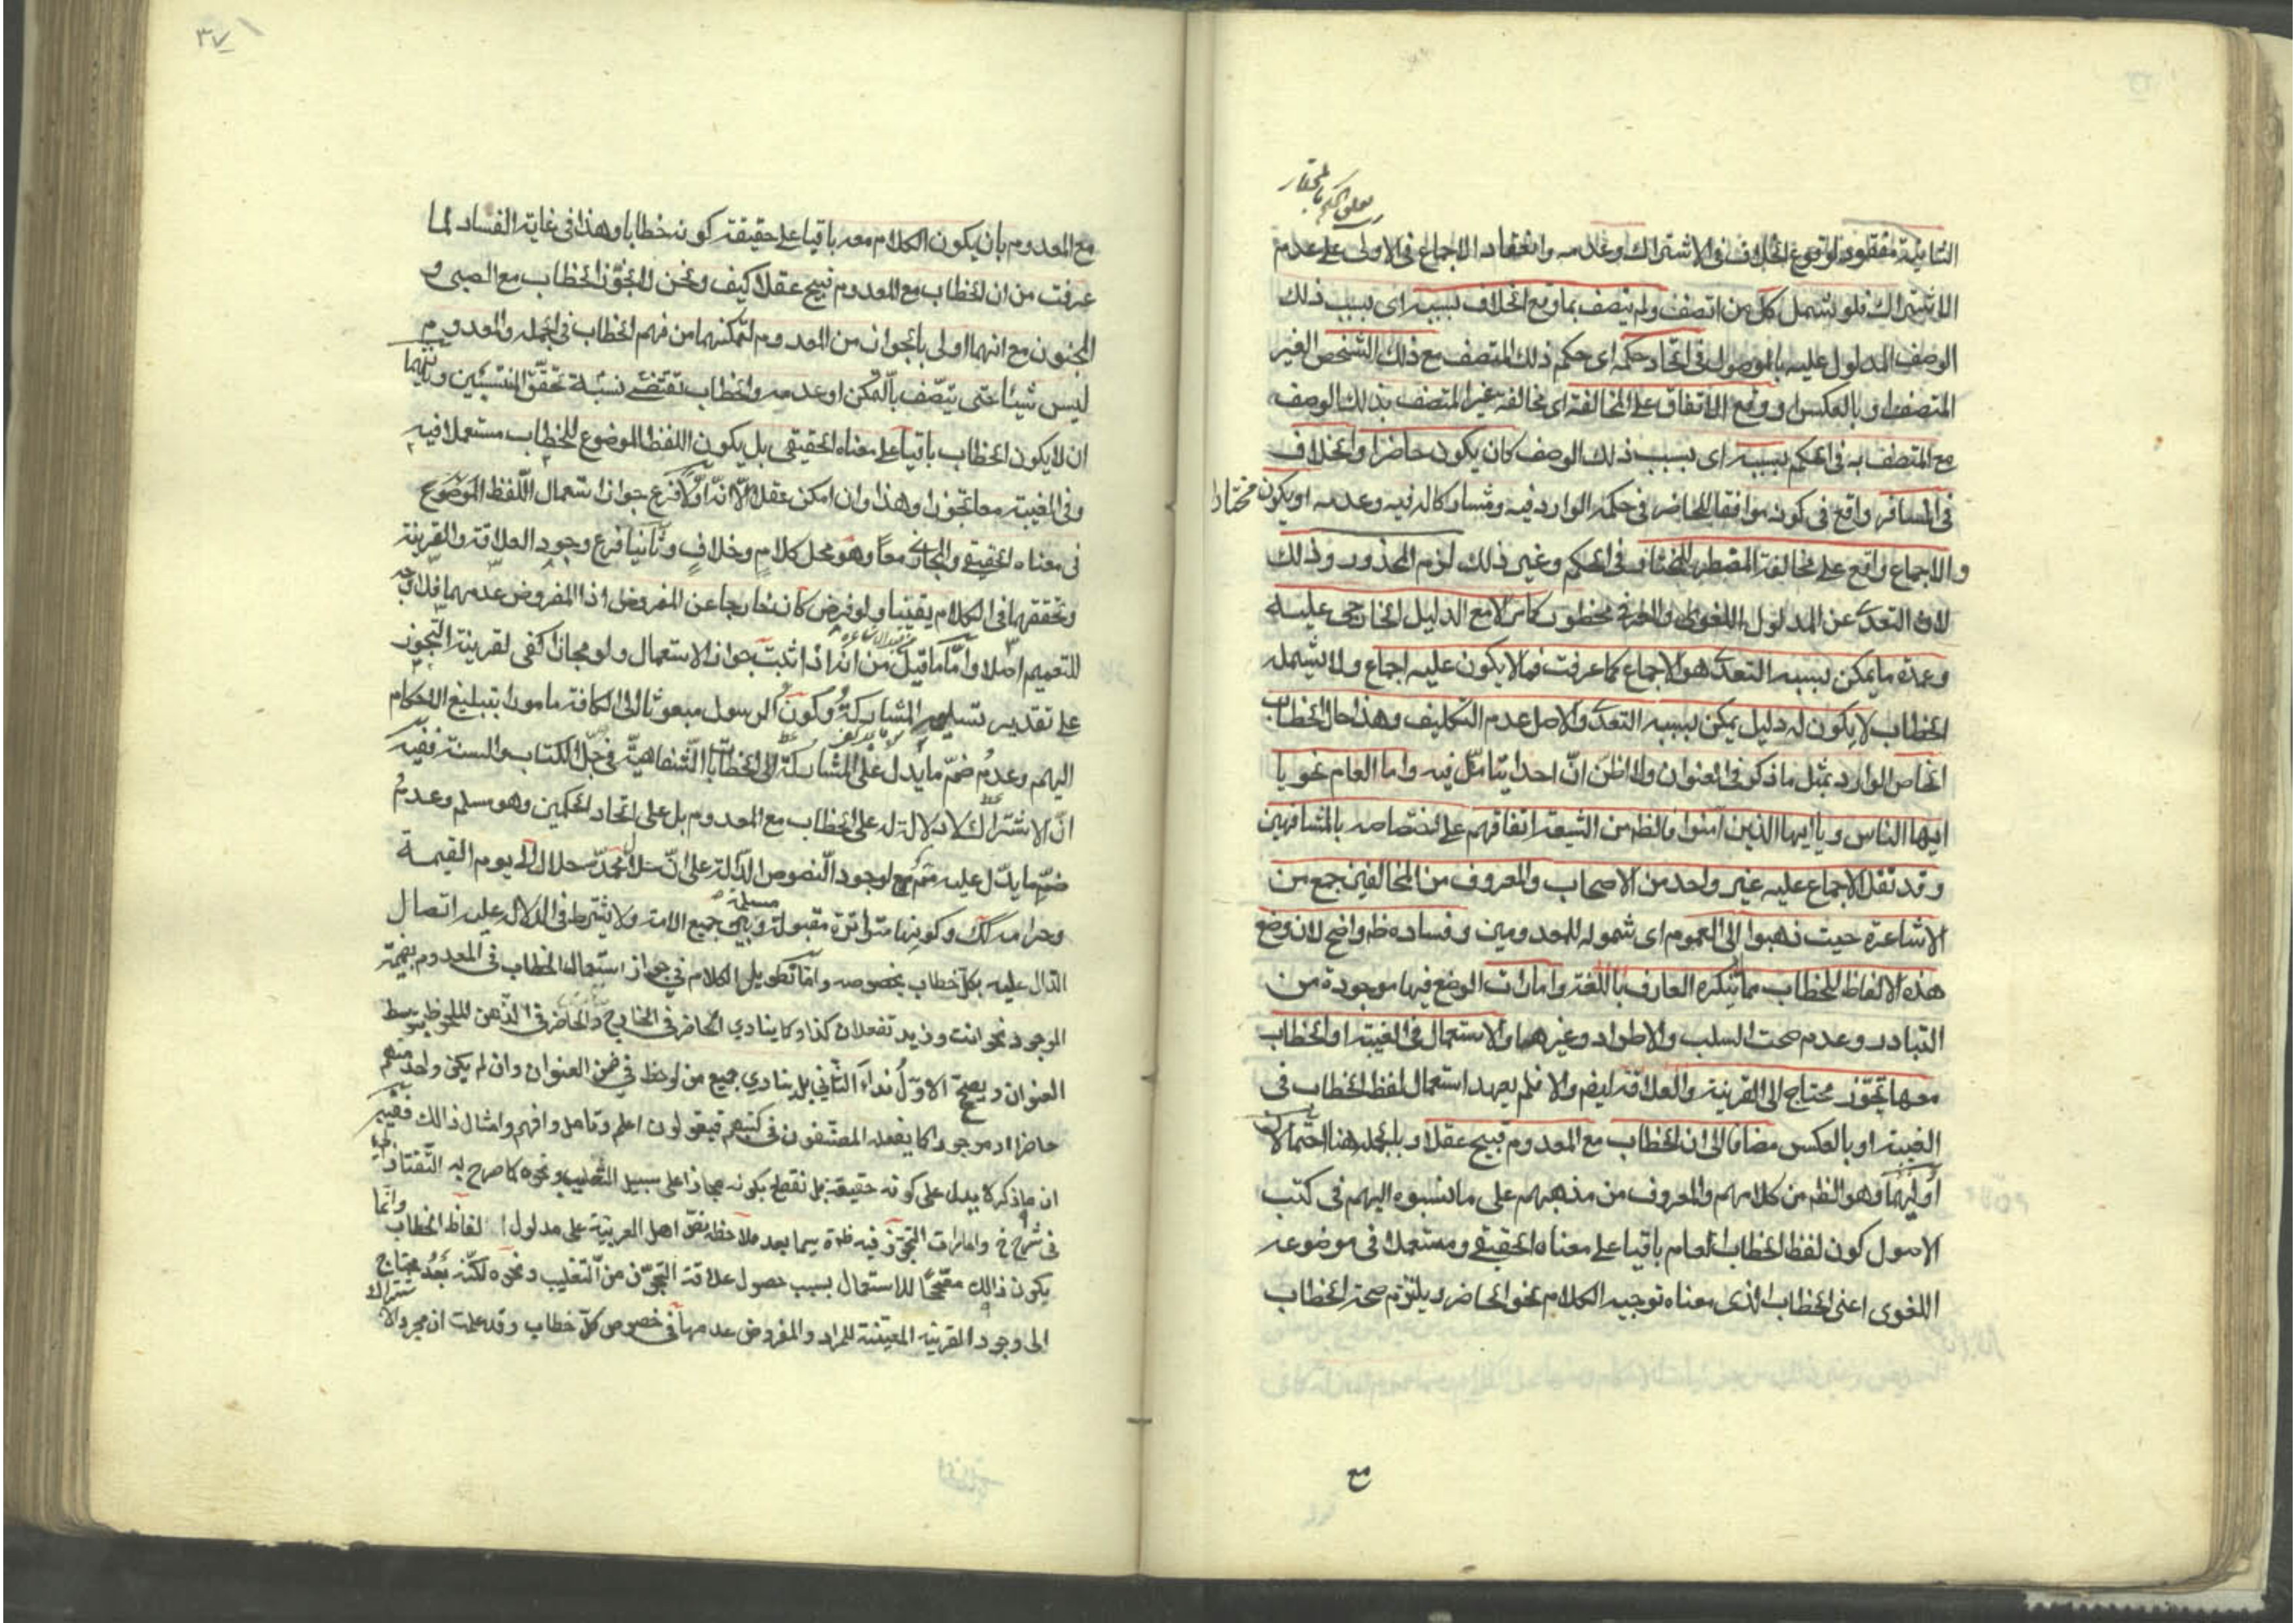 الثانية مفقود لوقوع الخلاف فى الاشتراك وعدمه وانعقاد الاجماع فى الاولى على عدم
الاشتراك فلو شمل كل من اتصف ولم يتصف بما وقع الخلاف بسببه اى بسبب ذلك
الوصف المدلول عليه بالموصول فى اتحاد حكمه اى حكم ذلك المتصف مع ذلك الشخص الغير
المتصف او بالعكس او وقع الاتفاق على المخالفة اى مخالفة غير المتصف بذلك الوصف
مع المتصف به فى الحكم بسببه اى بسبب ذلك الوصف كان يكون حاضرا والخلاف
فى المسافر واقع فى كونه موافقا للحاضر فى حكمه الوارد فيه ومشاركا له فيه وعدمه او يكون مختارا
والاجماع واقع على مخالفة المضطر للمختار فى الحكم وغير ذلك لزم المحذور وذلك
لان التعدى عن المدلول اللغوى والعرفى محظور كما مر الا مع الدليل الخارجى عليه
وعمدة ما يمكن بسببه التعدى هو الاجماع كما عرفت فما لا يكون عليه اجماع ولا يشمله
الخطاب لا يكون له دليل يمكن بسببه التعدى والاصل عدم التكليف وهذا حال الخطاب
الخاص الوارد بمثل ما ذكر فى العنوان ولا اظن ان احدا يتامل فيه واما العام نحو يا
ايها الناس ويا ايها الذين آمنوا فالظ من الشيعة اتفاقهم على اختصاصه بالمشافهين
وقد نقل الاجماع عليه غير واحد من الاصحاب والمعروف من المخالفين جمع من
الاشاعرة حيث ذهبوا الى العموم اى شموله للمعدومين وفساده ظ واضح لان وضع
هذه الالفاظ للخطاب مما لا ينكره العارف باللغة وامارات الوضع فيها موجودة من
التبادر وعدم صحت السلب والاطراد وغيرهما والاستعمال فى الغيبة او الخطاب
معها تجوز محتاج الى القرينة والعلاقة ايض والا فلم يعهد استعمال لفظ الخطاب فى
الغيبة او بالعكس مضافا الى ان الخطاب مع المعدوم قبيح عقلا وبالجملة هنا احتمالان
اوليهما وهو الظ من كلامهم والمعروف من مذهبهم على ما نسبوه اليهم فى كتب
الاصول كون لفظ الخطاب العام باقيا على معناه الحقيقى ومستعملا فى موضوعه
اللغوى اعنى الخطاب الذى معناه توجيه الكلام نحو الحاضر ويلتزم صحة الخطاب
مع
٣٧
مع المعدوم بان يكون الكلام معه باقيا على حقيقته كونه خطابا وهذا فى غاية الفساد لما
عرفت من ان الخطاب مع المعدوم قبيح عقلا كيف ونحن لا نجوز الخطاب مع الصبى و
المجنون مع انهما اولى بالجواز من المعدوم لتمكنهما من فهم الخطاب فى الجملة والمعدوم
ليس شيئا حتى يتصف بالتمكن او عدمه والخطاب يقتضى نسبة تحقق المنتسبين وثانيهما
ان لا يكون الخطاب باقيا على معناه الحقيقى بل يكون اللفظ الموضوع للخطاب مستعملا فيه
وفى الغيبة معا تجوزا وهذا وان امكن عقلا الا انه اولا فرع جواز استعمال اللفظ الموضوع
فى معناه الحقيقى والمجازى معا وهو محل كلام وخلاف وثانيا فرع وجود العلاقة والقرينة
وتحققهما فى الكلام يقينا ولو فرض كان خارجا عن المفروض اذا المفروض عدمهما فلا وجه
للتعميم اصلا واما ما قيل من انه اذا ثبت جواز الاستعمال ولو مجازا كفى لقرينة التجوز
على تقدير تسليم المشاركة وكون الرسول مبعوثا الى الكافة مامورا بتبليغ الاحكام
اليهم وعدم ضم ما يدل على المشاركة الى الخطابات الشفاهية فى جل الكتاب والسنة ففيه
ان الاشتراك لا دلالة له على الخطاب مع المعدوم بل على اتحاد الحكمين وهو مسلم وعدم
ضم ما يدل عليه مم لوجود النصوص الدالة على ان حلال محمد حلال الى يوم القيمة
وحرامه كك وكونها متواترة مقبولة بين جميع الامة ولا يشترط فى الدلالة عليه اتصال
الدال عليه بكل خطاب بخصوصه واما تطويل الكلام فى جواز استعمال الخطاب فى المعدوم بضميمة
الموجود نحو انت وزيد تفعلان كذا وكما ينادي الحاضر فى الخارج والحاضر فى الذهن للملحوظ بتوسط
العنوان ويصح الاول نداء الثاني بل ينادي جميع من لوحظ في ضمن العنوان وان لم يكن واحد منهم
حاضرا او موجودا كما يفعله المصنفون فى كتبهم فيقولون اعلم وتامل وافهم وامثال ذالك ففيه
ان ما ذكر لا يدل على كونه حقيقة بل نقطع بكونه مجازا على سبيل التغليب ونحوه كما صرح به التفتازانى
فى شرح وامارات التجوز فيه ظاهرة سيما بعد ملاحظه نص اهل العربية على مدلول الفاظ الخطاب وانما
يكون ذالك مصححا للاستعمال بسبب حصول علاقة التجوز من التغليب ونحوه لكنه بعد محتاج
الى وجود القرينه المعينة للمراد والمفروض عدمها فى خصوص كل خطاب وقد علمت ان مجرد الاشتراك